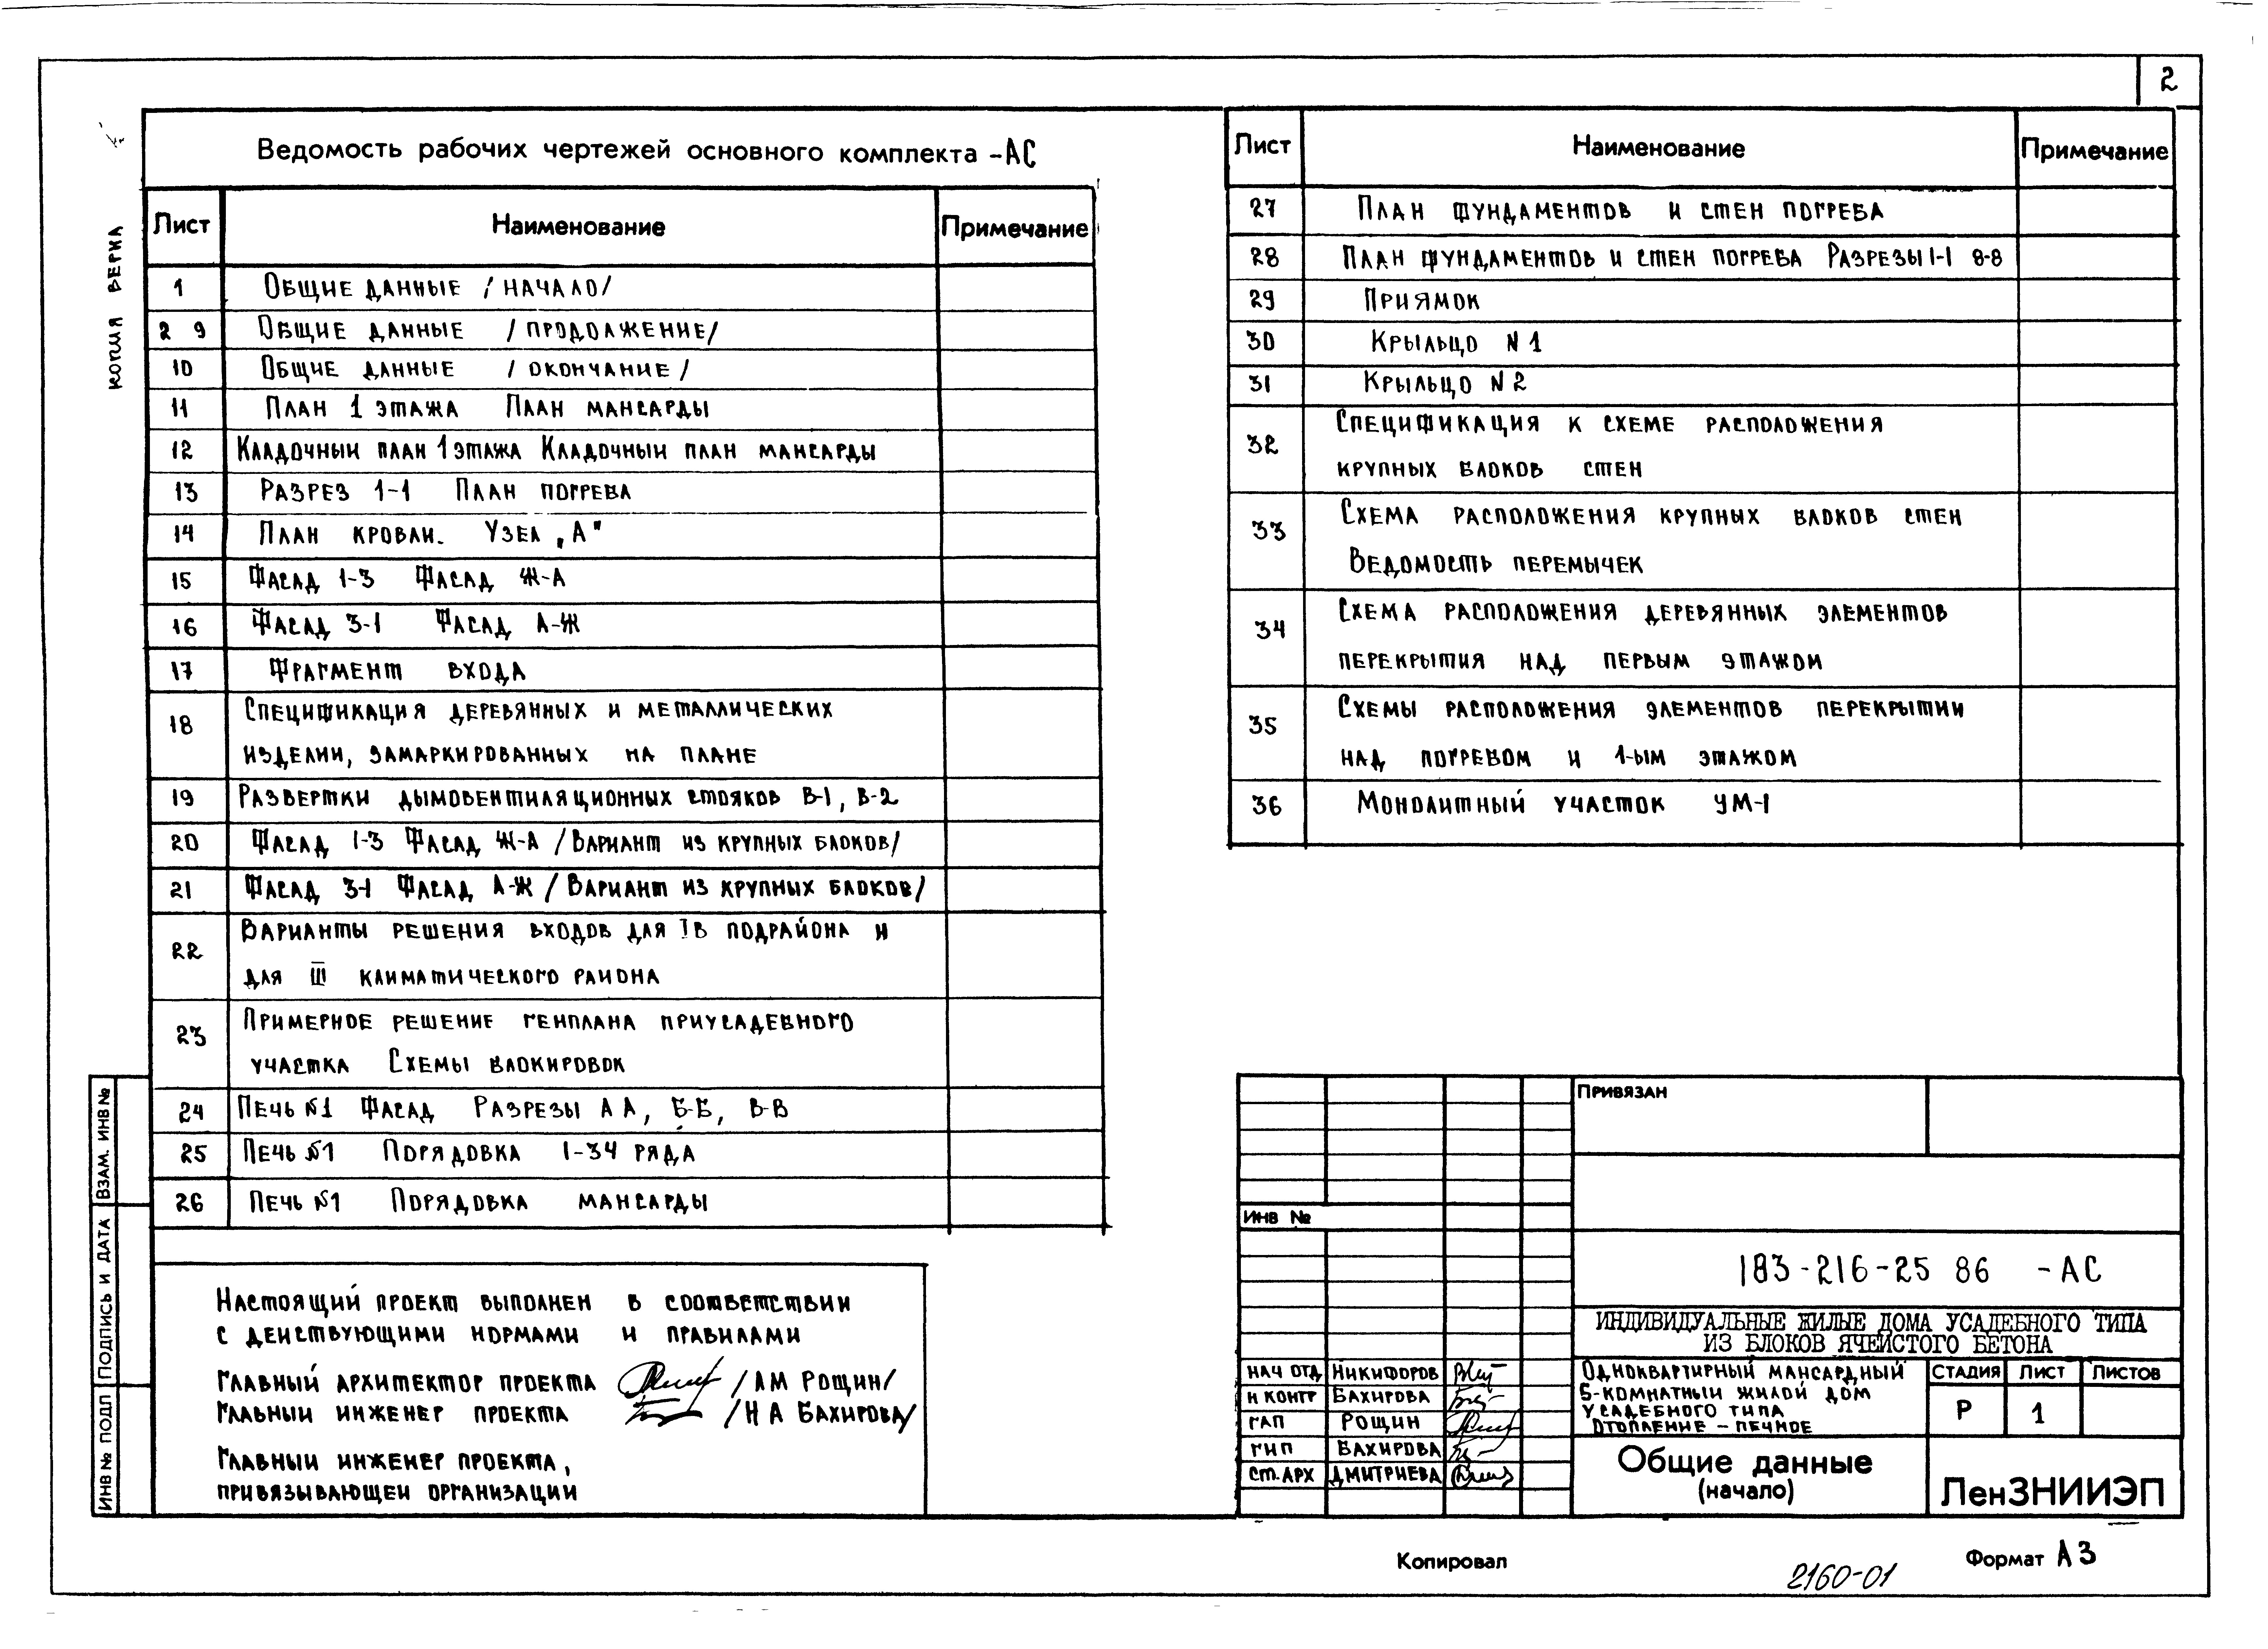 2
КОПИЯ ВЕРНА
Ведомость рабочих чертежей основного комплекта -АС
Лист Наименование Примечание
1 Общие данные /начало/
2 9 Общие данные /продолжение/
10 Общие данные /окончание/
11 План 1 этажа План мансарды
12 Кладочный план 1 этажа Кладочный план мансарды
13 Разрез 1-1 План погреба
14 План кровли. Узел „А"
15 Фасад 1-3 Фасад Ж-А
16 Фасад 3-1 Фасад А-Ж
17 Фрагмент входа
18 Спецификация деревянных и металлических
изделий, замаркированных на плане
19 Развертки дымовентиляционных стояков В-1, В-2
20 Фасад 1-3 Фасад Ж-А /Вариант из крупных блоков/
21 Фасад 3-1 Фасад А-Ж /Вариант из крупных блоков/
22 Варианты решения входов для IВ подрайона и
для III климатического района
23 Примерное решение генплана приусадебного
участка Схемы блокировок
24 Печь №1 Фасад Разрезы А А, Б-Б, В-В
25 Печь №1 Порядовка 1-34 ряда
26 Печь №1 Порядовка мансарды
Лист Наименование Примечание
27 План фундаментов и стен погреба
28 План фундаментов и стен погреба Разрезы 1-1 8-8
29 Приямок
30 Крыльцо N 1
31 Крыльцо N 2
32 Спецификация к схеме расположения
крупных блоков стен
33 Схема расположения крупных блоков стен
Ведомость перемычек
34 Схема расположения деревянных элементов
перекрытия над первым этажом
35 Схемы расположения элементов перекрытий
над погребом и 1-ым этажом
36 Монолитный участок УМ-1
Настоящий проект выполнен в соответствии
с действующими нормами и правилами
Главный архитектор проекта /А М Рощин/
Главный инженер проекта /Н А Бахирова/
Главный инженер проекта,
привязывающей организации
ИНВ № ПОДЛ ПОДПИСЬ И ДАТА ВЗАМ. ИНВ №
Привязан
ИНВ №
183-216-25 86 -АС
ИНДИВИДУАЛЬНЫЕ ЖИЛЫЕ ДОМА УСАДЕБНОГО ТИПА
ИЗ БЛОКОВ ЯЧЕИСТОГО БЕТОНА
НАЧ ОТД Никифоров
Н КОНТР Бахирова
ГАП Рощин
ГИП Бахирова
СТ. АРХ Дмитриева
Одноквартирный мансардный
5-комнатный жилой дом
усадебного типа
Отопление - печное
Стадия Лист Листов
Р 1
Общие данные
(начало)
ЛенЗНИИЭП
Копировал
Формат А3
2160-01